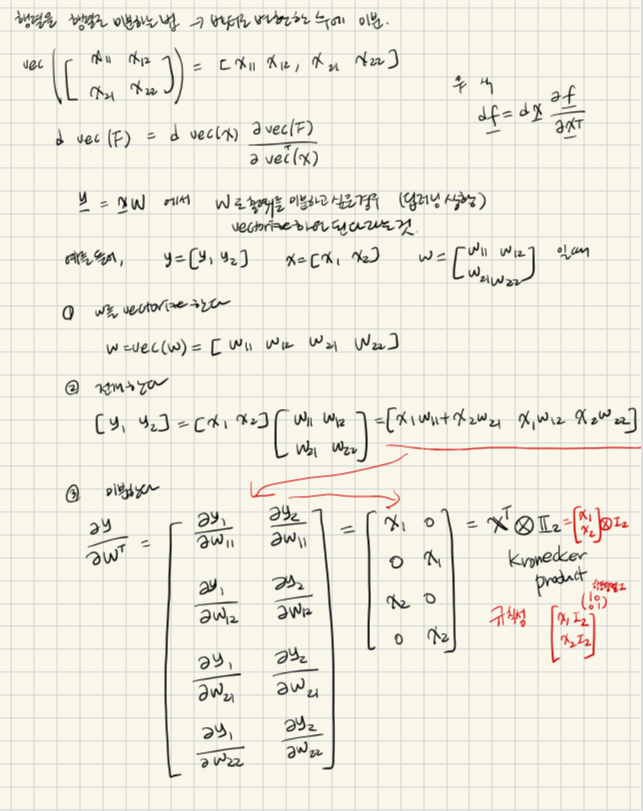 행렬을 행렬로 미분하는법 → 벡터로 변환한 후에 미분.
vec([x₁₁ x₁₂
x₂₁ x₂₂]) = [x₁₁ x₁₂, x₂₁ x₂₂]
d vec(F) = d vec(x) ∂vec(F)/∂vecᵀ(x)
df = dx ∂f/∂xᵀ
y = xW 에서 W로 출력을 미분하고 싶은 경우 (딥러닝 상황)
vectorize하면 된다라는것.
예를들어, y=[y₁ y₂] x=[x₁ x₂] w=[w₁₁ w₁₂
w₂₁ w₂₂] 일때
① w를 vectorize 한다
w=vec(w) = [w₁₁ w₁₂ w₂₁ w₂₂]
② 전개한다
[y₁ y₂] = [x₁ x₂][w₁₁ w₁₂
w₂₁ w₂₂] = [x₁w₁₁+x₂w₂₁ x₁w₁₂ x₂w₂₂]
③ 미분한다
∂y/∂wᵀ = [∂y₁/∂w₁₁ ∂y₂/∂w₁₁
∂y₁/∂w₁₂ ∂y₂/∂w₁₂
∂y₁/∂w₂₁ ∂y₂/∂w₂₁
∂y₁/∂w₂₂ ∂y₂/∂w₂₂]
= [x₁ 0
0 x₁
x₂ 0
0 x₂]
= xᵀ ⊗ I₂ = [x₁
x₂] ⊗ I₂
Kronecker
product
(1 0
0 1)
규칙성 [x₁I₂
x₂I₂]